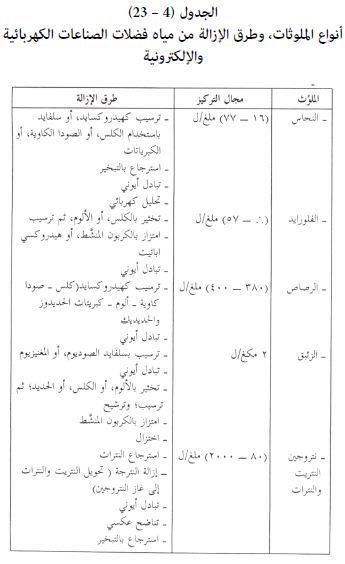 الجدول (4 – 23)
أنواع الملوثات، وطرق الإزالة من مياه فضلات الصناعات الكهربائية
والإلكترونية
الملوّث مجال التركيز طرق الإزالة
ـ النحاس (١٦ – ٧٧) ملغ/ل ـ ترسيب كهيدروكسايد، أو سلفايد
باستخدام الكلس، أو الصودا الكاوية، أو
الكبريتات
ـ استرجاع بالتبخير
ـ تبادل أيوني
ـ تحليل كهربائي
ـ الفلورايد – ٥٧) ملغ/ل ـ تخثير بالكلس، أو الألوم، ثم ترسيب
ـ امتزاز بالكربون المنشَّط، أو هيدروكسي
اباتيت
ـ تبادل أيوني
ـ الرصاص (٣٨٠ – ٤٠٠) ملغ/ل ـ ترسيب كهيدروكسايد (كلس – صودا
كاوية – ألوم – كبريتات الحديدوز
والحديديك
ـ تبادل أيوني
ـ الزئبق ٢ مكغ/ل ـ ترسيب بسلفايد الصوديوم، أو المغنيزيوم
ـ تبادل أيوني
ـ تخثير بالألوم، أو الكلس، أو الحديد؛ ثم
ترسيب؛ وترشيح
ـ امتزاز بالكربون المنشَّط
ـ اختزال
ـ نتروجين (٨٠ – ٢٠٠٠) ملغ/ل ـ استرجاع النترات
النتريت ـ إزالة النترجة ( تحويل النتريت والنترات
والنترات إلى غاز النتروجين)
ـ تبادل أيوني
ـ تناضح عكسي
ـ استرجاع بالتبخير